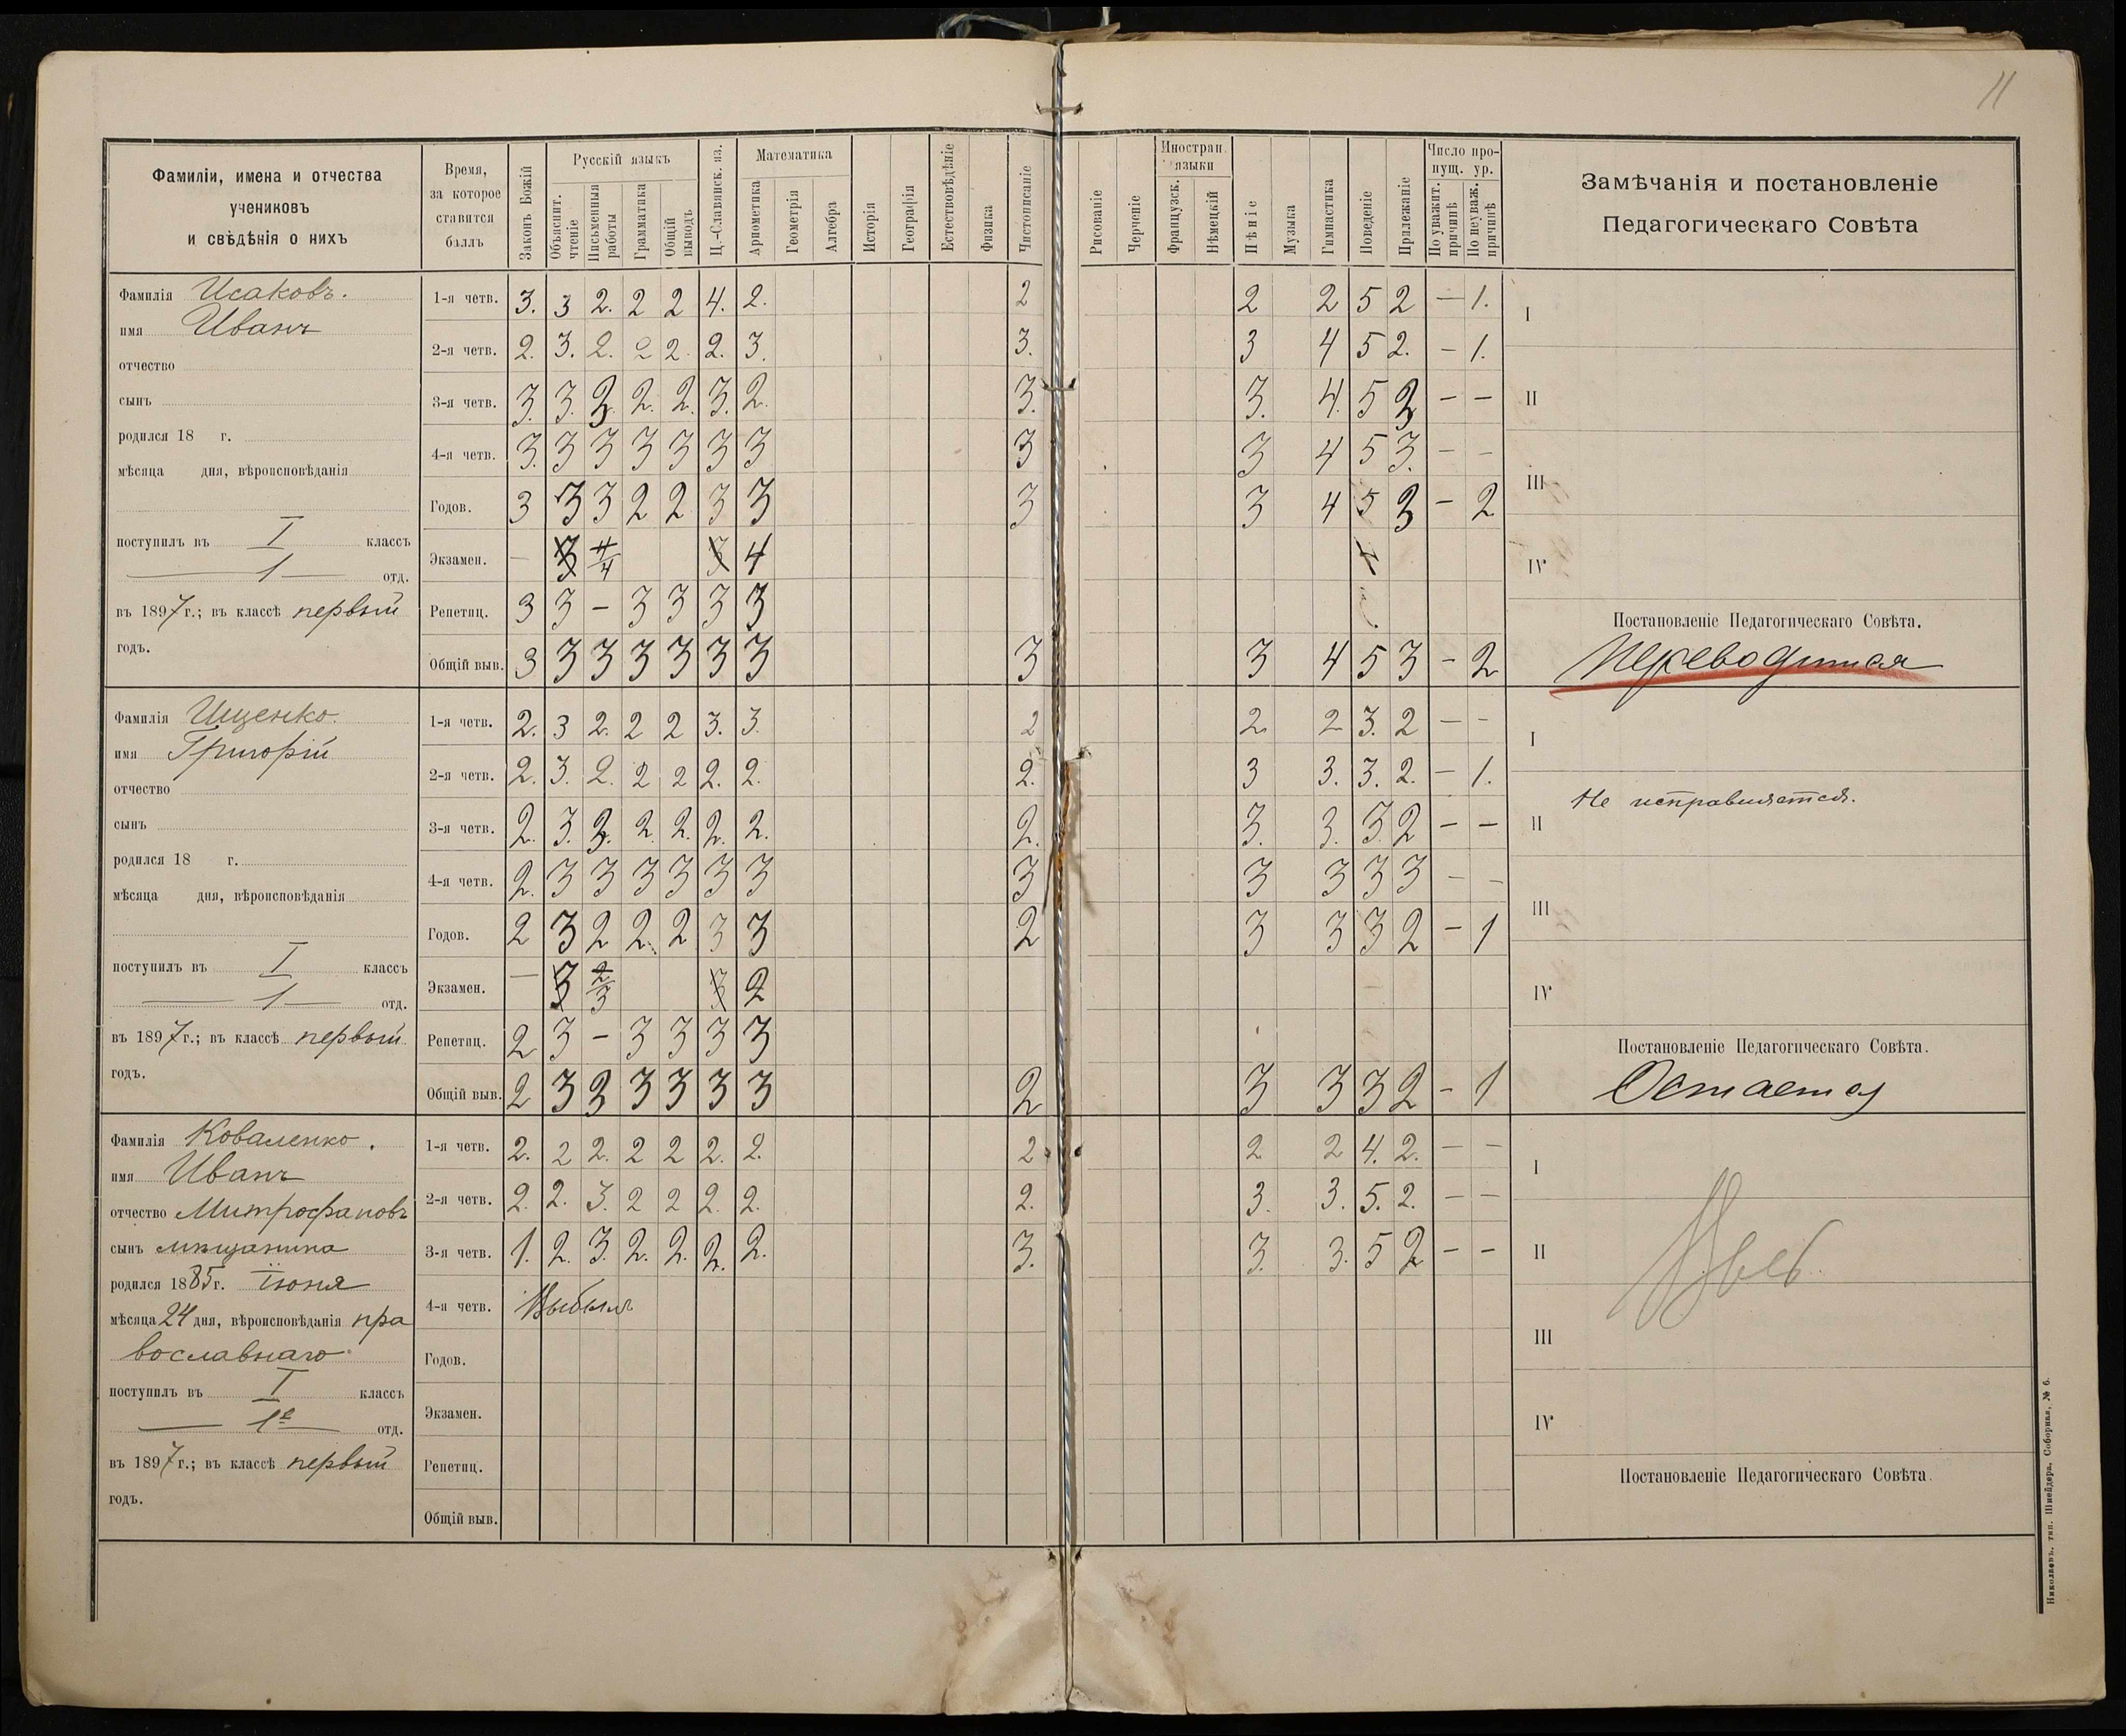 11
Фамиліи, имена и отчества
учениковъ
и свѣдѣнія о нихъ
Время,
за которое
ставится
баллъ
Законъ Божій
Русскій языкъ
Объяснит. чтеніе
Письменныя работы
Грамматика
Общій выводъ
Ц.-Славянск. яз.
Математика
Арифметика
Геометрія
Алгебра
Исторія
Географія
Естествовѣдѣніе
Физика
Чистописаніе
Рисованіе
Черченіе
Иностран. языки
Французск.
Нѣмецкій
Пѣніе
Музыка
Гимнастика
Поведеніе
Прилежаніе
Число пропущ. ур.
По уважит. причинѣ
По неуваж. причинѣ
Замѣчанія и постановленіе
Педагогическаго Совѣта
Фамилія Исаковъ.
имя Иванъ
отчество
сынъ
родился 18 г.
мѣсяца дня, вѣроисповѣданія
поступилъ въ I классъ
1 отд.
въ 1897 г.; въ классѣ первый
годъ.
1-я четв. 3. 3 2. 2 2 4. 2. 2 2 2 5 2 — 1.
2-я четв. 2. 3. 2. 2 2. 2. 3. 3. 3 4 5 2. — 1.
3-я четв. 3. 3. 2. 2. 2. 3. 2. 3. 3. 4. 5 2 — —
4-я четв. 3. 3 3 3 3 3 3 3 3 4 5 3. — —
Годов. 3 3 3 2 2 3 3 3 3 4 5 3 — 2
Экзамен. — 3 4/4 3 4
Репетиц. 3 3 — 3 3 3 3
Общій выв. 3 3 3 3 3 3 3 3 3 4 5 3 — 2
I
II
III
IV
Постановленіе Педагогическаго Совѣта.
Переводится
Фамилія Ищенко.
имя Григорій
отчество
сынъ
родился 18 г.
мѣсяца дня, вѣроисповѣданія
поступилъ въ I классъ
1 отд.
въ 1897 г.; въ классѣ первый
годъ.
1-я четв. 2. 3 2. 2 2 3. 3. 2 2 2 3. 2 — —
2-я четв. 2. 3. 2. 2 2 2. 2. 2. 3 3. 3. 2. — 1.
3-я четв. 2. 3. 3. 2. 2. 2. 2. 2. 3. 3. 3 2 — —
4-я четв. 2. 3 3 3 3 3 3 3 3 3 3 3 — —
Годов. 2 3 2 2 2 3 3 2 3 3 3 2 — 1
Экзамен. — 3 2/3 3 2
Репетиц. 2 3 — 3 3 3 3
Общій выв. 2 3 3 3 3 3 3 2 3 3 3 2 — 1
I
Не исправляется.
II
III
IV
Постановленіе Педагогическаго Совѣта.
Остается
Фамилія Коваленко.
имя Иванъ
отчество Митрофановъ
сынъ мѣщанина
родился 1885 г. іюня
мѣсяца 24 дня, вѣроисповѣданія пра
вославнаго
поступилъ въ I классъ
1е отд.
въ 1897 г.; въ классѣ первый
годъ.
1-я четв. 2. 2 2. 2 2 2. 2. 2 2 2 4. 2. — —
2-я четв. 2. 2. 3. 2 2 2. 2. 2. 3. 3. 5. 2. — —
3-я четв. 1. 2. 3. 2. 2. 2. 2. 3. 3. 3. 5 2 — —
4-я четв. Выбылъ
Годов.
Экзамен.
Репетиц.
Общій выв.
I
II
III
IV
Постановленіе Педагогическаго Совѣта.
Николаевъ, тип. Шнейдера, Соборная, № 6.